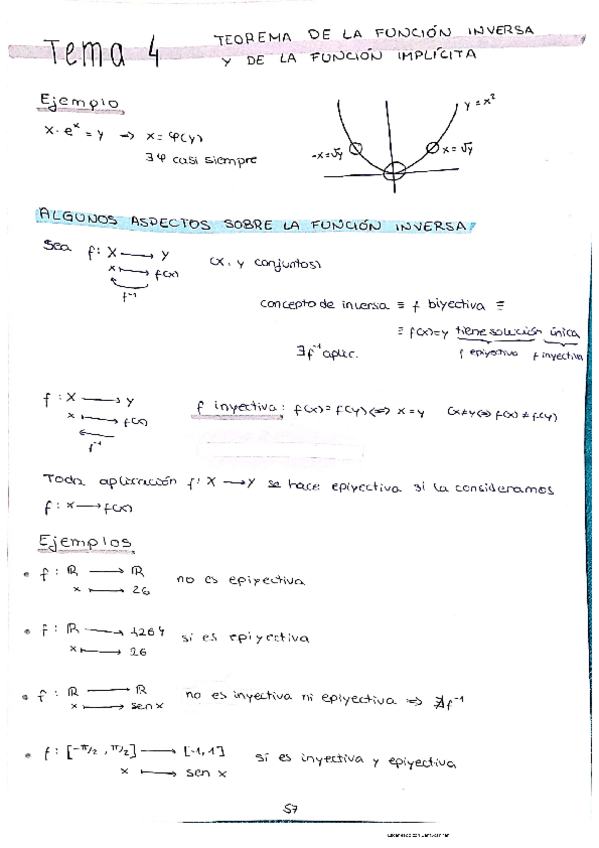 Tema 4 TEOREMA DE LA FUNCIÓN INVERSA
Y DE LA FUNCIÓN IMPLÍCITA
Ejemplo
x·eˣ = y → x = φ(y)
∃ φ casi siempre
y = x²
-x=√y x=√y
ALGUNOS ASPECTOS SOBRE LA FUNCIÓN INVERSA
Sea f: X ⟶ Y (X, Y conjuntos)
x ⟼ f(x)
f⁻¹
concepto de inversa ≡ f biyectiva ≡
≡ f(x)=y tiene solución única
∃f⁻¹ aplic. f epiyectiva f inyectiva
f: X ⟶ Y f inyectiva: f(x) = f(y) ⟺ x = y (x≠y ⟺ f(x) ≠ f(y)
x ⟼ f(x)
f⁻¹
Toda aplicación f: X ⟶ Y se hace epiyectiva si la consideramos
f: X ⟶ f(x)
Ejemplos
• f: ℝ ⟶ ℝ no es epiyectiva
x ⟼ 26
• f: ℝ ⟶ {26} sí es epiyectiva
x ⟼ 26
• f: ℝ ⟶ ℝ no es inyectiva ni epiyectiva ⟹ ∄f⁻¹
x ⟼ sen x
• f: [-π/2, π/2] ⟶ [-1, 1] sí es inyectiva y epiyectiva
x ⟼ sen x
57